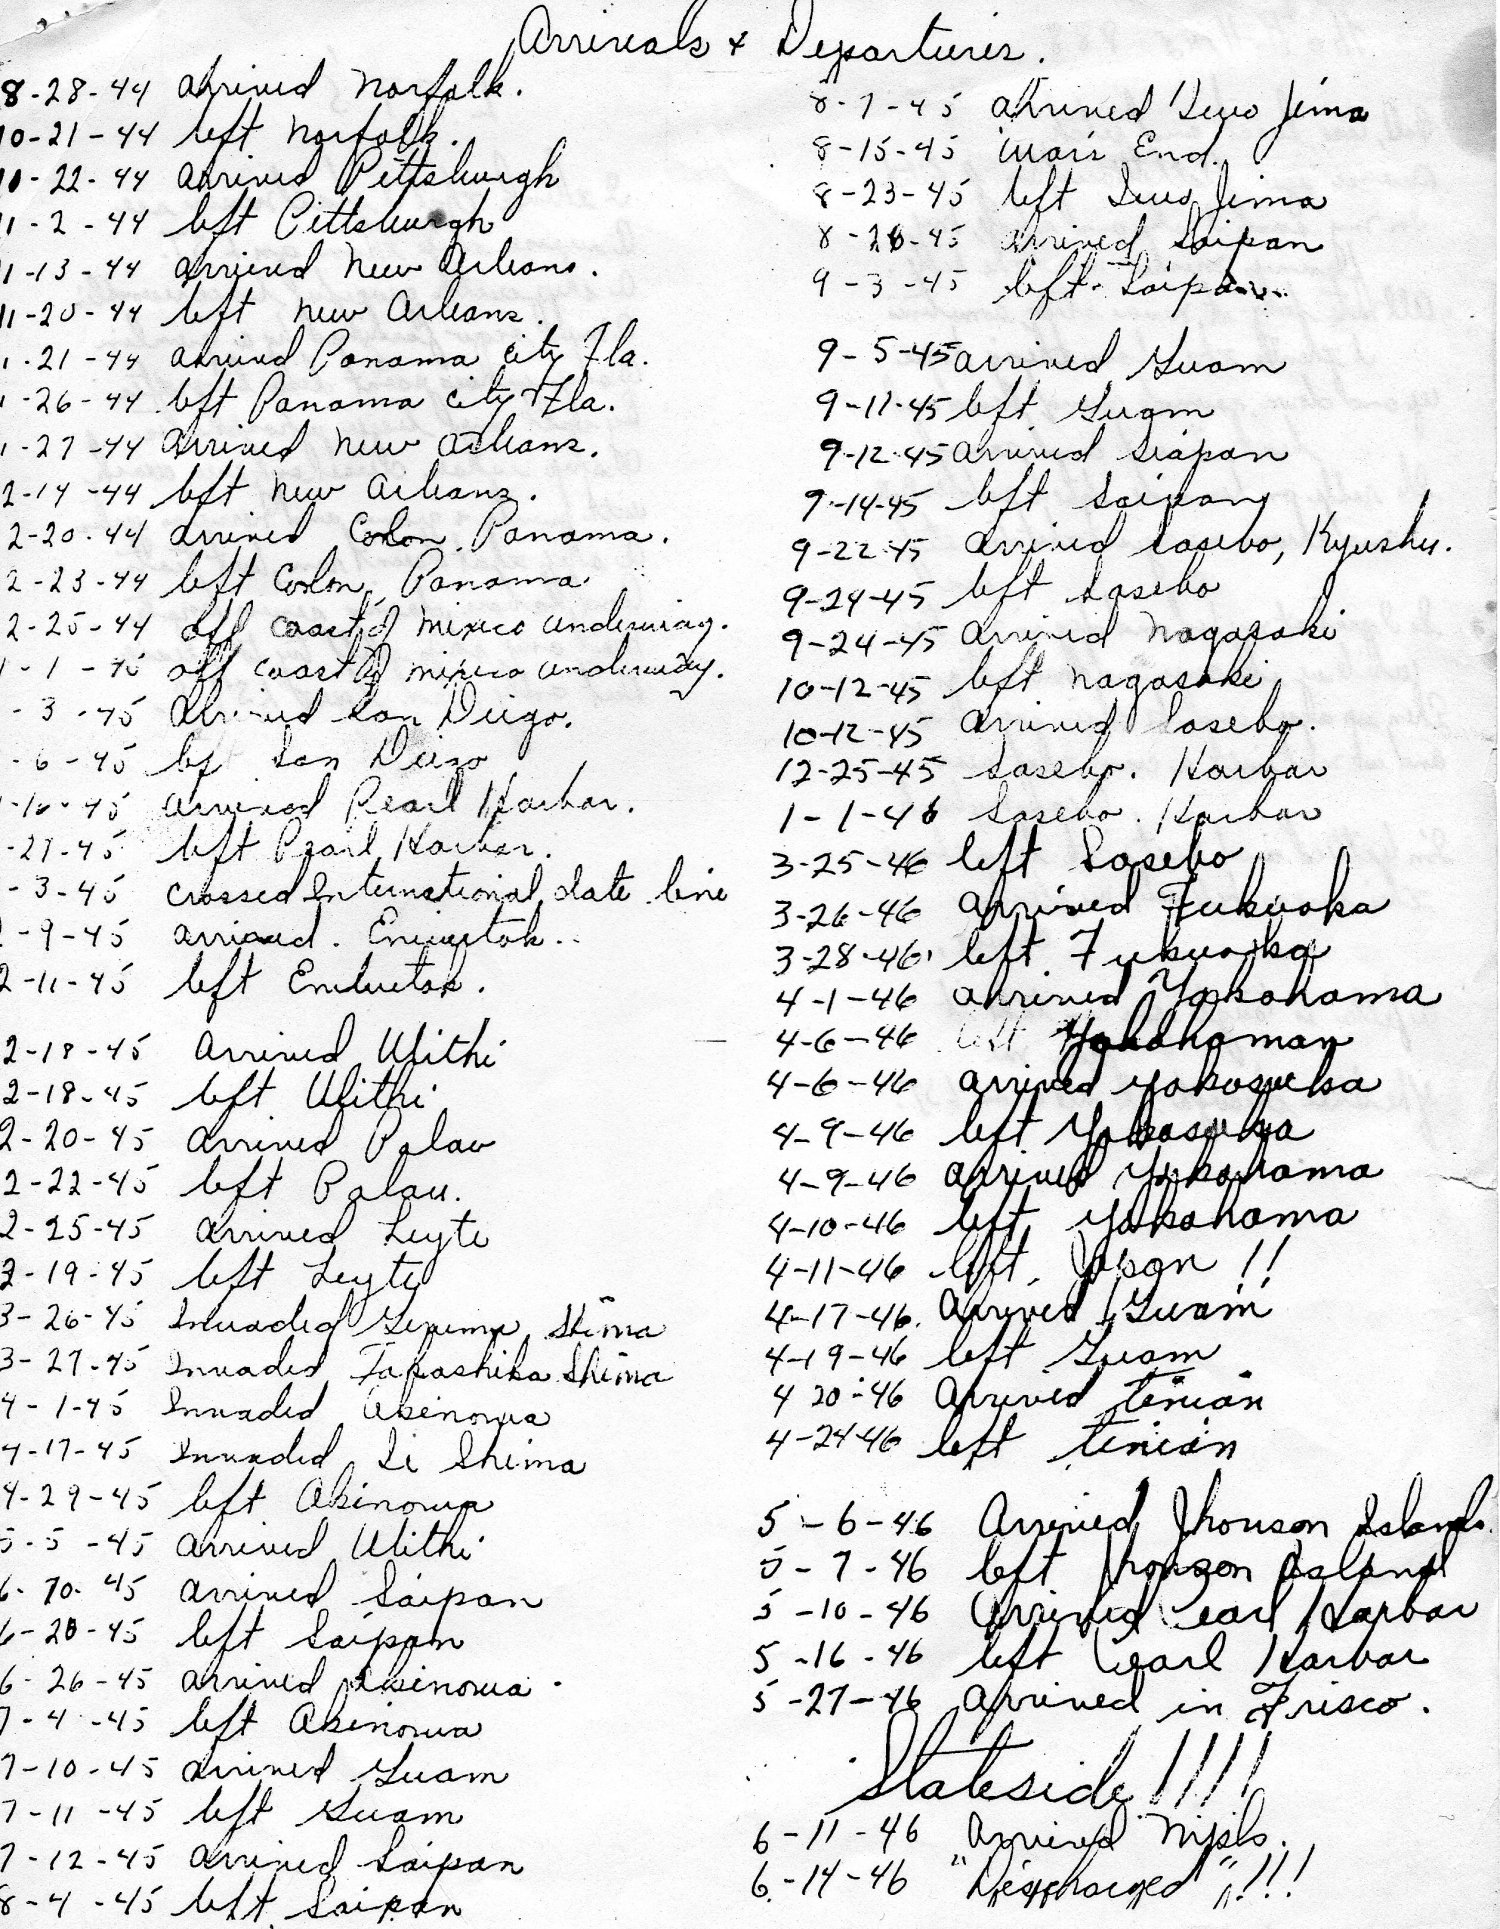 Arrivals & Departures.
8-28-44 Arrived Norfolk.
10-21-44 left Norfolk.
10-22-44 arrived Pittsburgh
11-2-44 left Pittsburgh
11-13-44 arrived New Orleans.
11-20-44 left New Orleans.
1-21-44 arrived Panama City Fla.
1-26-44 left Panama City Fla.
1-27-44 arrived New Orleans.
2-14-44 left New Orleans.
2-20-44 arrived Colon, Panama.
2-23-44 left Colon, Panama
2-25-44 off coast of Mexico underway.
1-1-45 off coast of Mexico underway.
-3-45 Arrived San Diego.
-6-45 left San Diego
-16-45 arrived Pearl Harbor.
-27-45 left Pearl Harbor.
-3-45 crossed International date line
-9-45 arrived. Eniwetok..
2-11-45 left Eniwetok.
2-18-45 Arrived Ulithi
2-18-45 left Ulithi
2-20-45 arrived Palau
2-22-45 left Palau.
2-25-45 arrived Leyte
3-19-45 left Leyte
3-26-45 Invaded Gerema Shima
3-27-45 Invaded Takashika Shima
4-1-45 Invaded Okinowa
4-17-45 Invaded Ii Shima
4-29-45 left Okinowa
5-5-45 arrived Ulithi
6-10-45 arrived Saipan
6-20-45 left Saipan
6-26-45 arrived Okinowa.
7-4-45 left Okinowa
7-10-45 arrived Guam
7-11-45 left Guam
7-12-45 arrived Saipan
8-4-45 left Saipan
8-7-45 arrived Iwo Jima
8-15-45 War's End.
8-23-45 left Iwo Jima
8-26-45 arrived Saipan
9-3-45 left Saipan
9-5-45 arrived Guam
9-11-45 left Guam
9-12-45 arrived Siapan
9-14-45 left Saipan
9-22-45 arrived Sasebo, Kyushu.
9-24-45 left Sasebo
9-24-45 arrived Nagasaki
10-12-45 left Nagasaki
10-12-45 arrived Sasebo.
12-25-45 Sasebo. Harbor
1-1-46 Sasebo. Harbor
3-25-46 left Sasebo
3-26-46 arrived Fukuoka
3-28-46 left Fukuoka
4-1-46 arrived Yokohama
4-6-46 left Yokohaman
4-6-46 arrived Yokosuka
4-9-46 left Yokosuka
4-9-46 arrived Yokohama
4-10-46 left Yokohama
4-11-46 left Japan !!
4-17-46. Arrived Guam
4-19-46 left Guam
4 20-46 Arrived tinian
4-24-46 left tinian
5-6-46 Arrived Jhonson Islands.
5-7-46 left Jhonson Island
5-10-46 Arrived Pearl Harbor
5-16-46 left Pearl Harbor
5-27-46 Arrived in Frisco.
Stateside!!!!
6-11-46 Arrived Mpls.
6-14-46 "Discharged"!!!